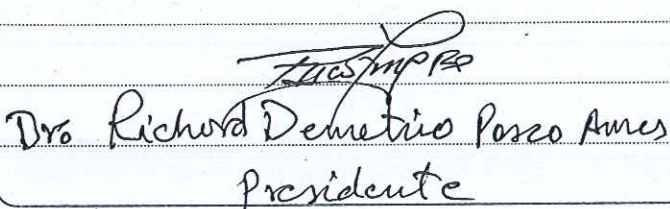 Dro Richard Demetrio Pozzo Ames
Presidente